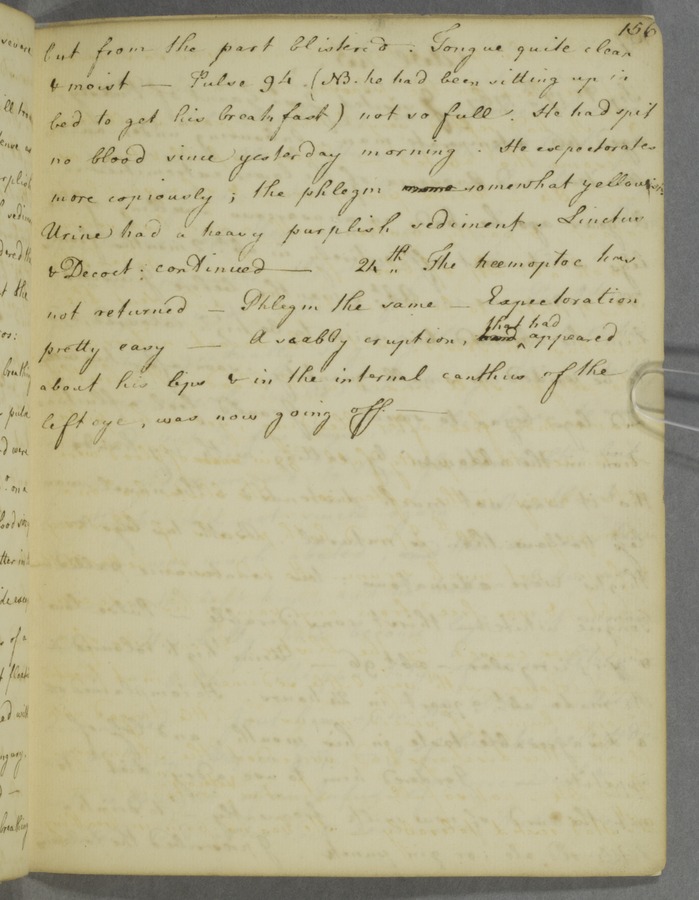 156
but from the part blistered. Tongue quite clean
& moist — Pulse 94. (NB. he had been sitting up in
bed to get his breakfast) not so full. He had spit
no blood since yesterday morning. He expectorates
more copiously; the phlegm somewhat yellowish
Urine had a heavy purplish sediment. Linctus
& Decoct: continued — 24th The hæmoptoe has
not returned — Phlegm the same — Expectoration
pretty easy — A scabby eruption, that had appeared
about his lips & in the internal canthus of the
left eye, was now going off —